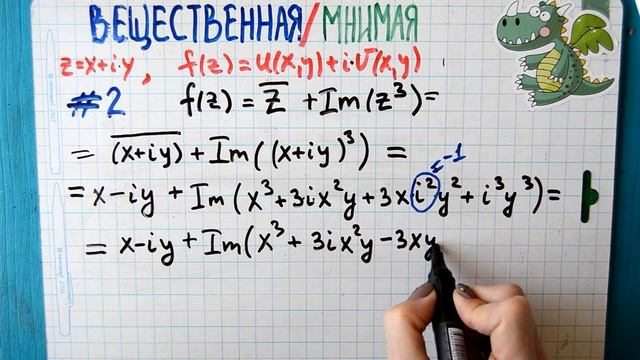 ВЕЩЕСТВЕННАЯ/МНИМАЯ
z=x+i·y, f(z)=u(x,y)+i·v(x,y)
#2 f(z)=z̅+Im(z³)=
= \overline{(x+iy)}+Im((x+iy)³) =
=-1
=x-iy+Im(x³+3ix²y+3xi²y²+i³y³)=
=x-iy+Im(x³+3ix²y-3xy